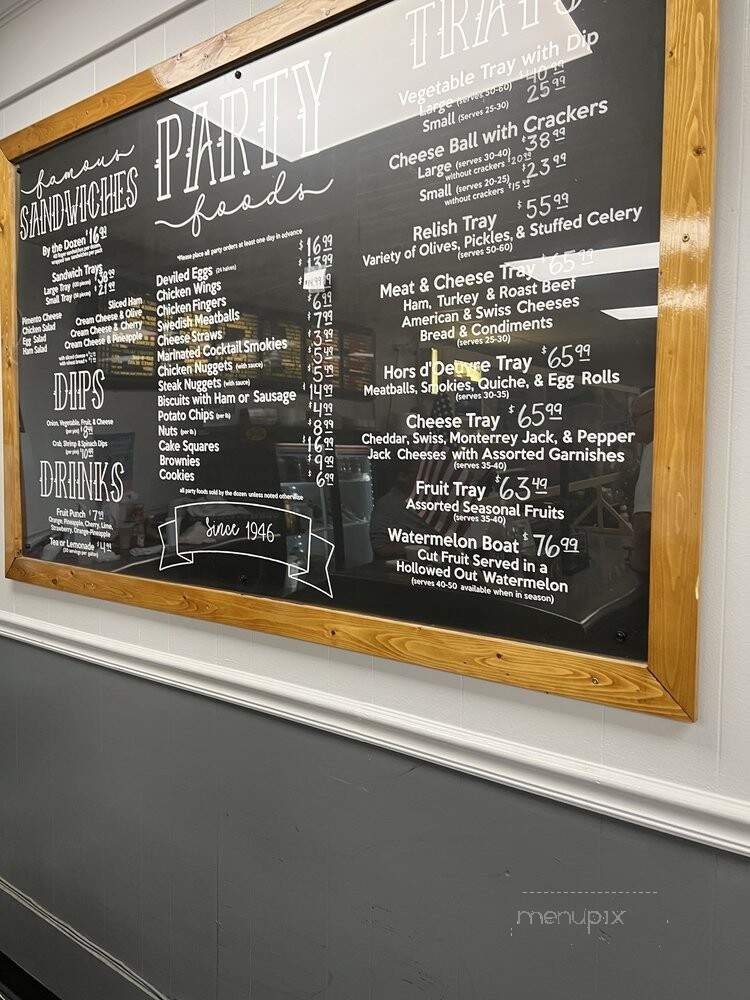 famous
SANDWICHES
By the Dozen $16.99
Sandwich Trays
Large Tray
Small Tray
Pimento Cheese
Chicken Salad
Egg Salad
Ham Salad
Sliced Ham
Cream Cheese & Olive
Cream Cheese & Cherry
Cream Cheese & Pineapple
DIPS
Onion, Vegetable, Fruit, & Cheese
(per pint) $8.49
Crab, Shrimp & Spinach Dips
(per pint) $10.99
DRINKS
Fruit Punch $7.99
Orange, Pineapple, Cherry, Lime,
Strawberry, Orange-Pineapple
Tea or Lemonade $4.99
(20 servings per gallon)
PARTY
foods
*Please place all party orders at least one day in advance
Deviled Eggs (24 halves) $16.99
Chicken Wings $13.99
Chicken Fingers
Swedish Meatballs $6.99
Cheese Straws $7.99
Marinated Cocktail Smokies
Chicken Nuggets (with sauce)
Steak Nuggets (with sauce)
Biscuits with Ham or Sausage
Potato Chips (per lb)
Nuts (per lb.)
Cake Squares $16.99
Brownies $9.99
Cookies $6.99
all party foods sold by the dozen unless noted otherwise
Since 1946
TRAYS
Vegetable Tray with Dip
Large (serves 50-60) $40.99
Small (Serves 25-30) 25.99
Cheese Ball with Crackers
Large (serves 30-40) $38.99
without crackers $20.99
Small (serves 20-25) $23.99
without crackers $15.99
Relish Tray $55.99
Variety of Olives, Pickles, & Stuffed Celery
(serves 50-60)
Meat & Cheese Tray $65.99
Ham, Turkey & Roast Beef
American & Swiss Cheeses
Bread & Condiments
(serves 25-30)
Hors d'Oeuvre Tray $65.99
Meatballs, Smokies, Quiche, & Egg Rolls
(serves 30-35)
Cheese Tray $65.99
Cheddar, Swiss, Monterrey Jack, & Pepper
Jack Cheeses with Assorted Garnishes
(serves 35-40)
Fruit Tray $63.49
Assorted Seasonal Fruits
(serves 35-40)
Watermelon Boat $76.99
Cut Fruit Served in a
Hollowed Out Watermelon
(serves 40-50 available when in season)
menupix